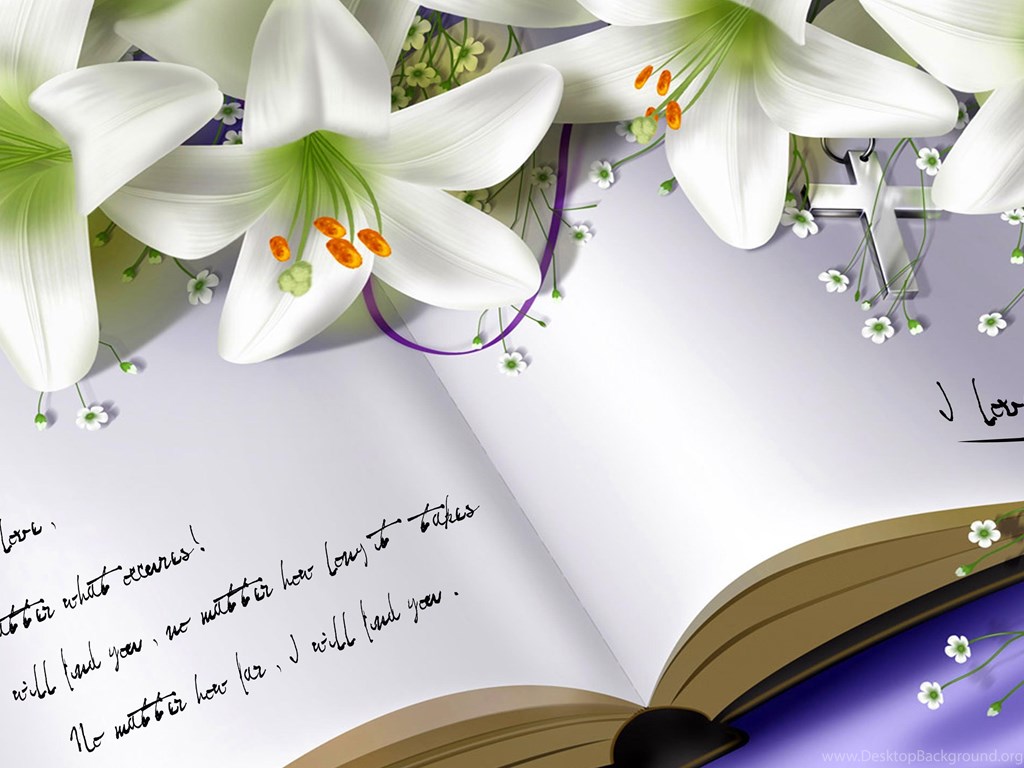 love,
what occures!
will find you, no matter how long it takes
No matter how far, I will find you.
I love
www.DesktopBackground.org